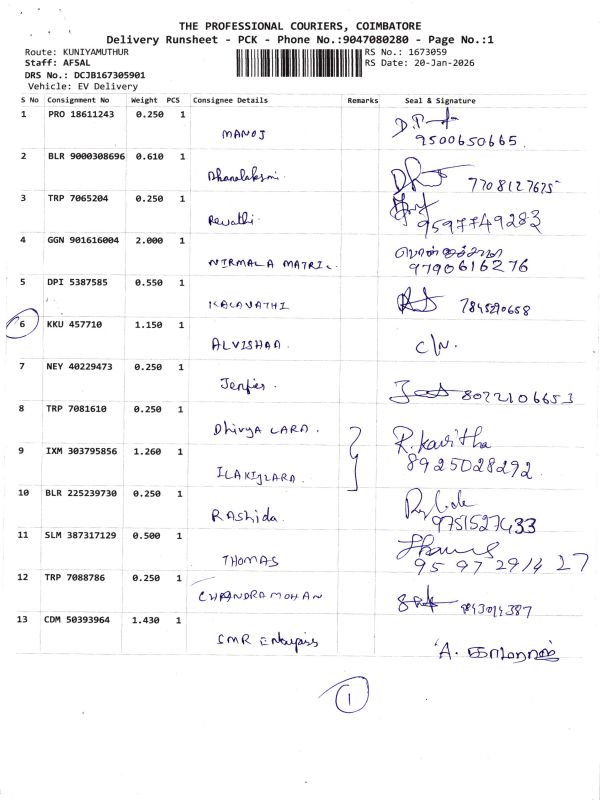 THE PROFESSIONAL COURIERS, COIMBATORE
Delivery Runsheet - PCK - Phone No.:9047080280 - Page No.:1
Route: KUNIYAMUTHUR
RS No.: 1673059
Staff: AFSAL
RS Date: 20-Jan-2026
DRS No.: DCJB167305901
Vehicle: EV Delivery
S No Consignment No Weight PCS Consignee Details Remarks Seal & Signature
1 PRO 18611243 0.250 1
MANOJ
9500650665.
2 BLR 9000308696 0.610 1
Dhanalaksmi.
7708127675
3 TRP 7065204 0.250 1
Revathi.
9597749283
4 GGN 901616004 2.000 1
NIRMALA MATRIC.
9790616276
5 DPI 5387585 0.550 1
KALAVATHI
7845290658
6 KKU 457710 1.150 1
ALVISHAA.
C/N.
7 NEY 40229473 0.250 1
Jenfier.
8072106653
8 TRP 7081610 0.250 1
Dhivya LARA.
R. Kavitha
9 IXM 303795856 1.260 1
8925028292.
10 BLR 225239730 0.250 1
RAShida.
9751527433
11 SLM 387317129 0.500 1
THOMAS
9597291427
12 TRP 7088786 0.250 1
CHANDRAMOHAN
9843014387
13 CDM 50393964 1.430 1
SMR
A.
1